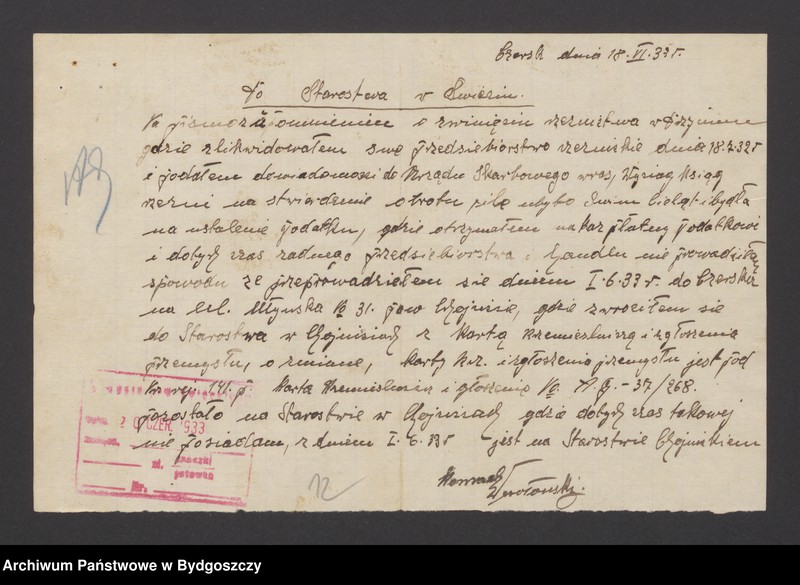 Czersk dnia 18. VI. 33 r.
Do Starostwa w Świeciu.
Na pismo z o zwinięciu rzeźnictwa w
gdzie zlikwidowałem swe przedsiębiorstwo rzeźnickie dnia 18.7.32 r
i podałem do wiadomości do Urzędu Skarbowego wraz, Wyciąg ksiąg
rzeźni na stwierdzenie obrotu ubyto świn cieląt i bydła
na ustalenie podatku, gdzie otrzymałem nakaz płatny podatkowi
i dotych czas żadnego przedsiębiorstwa i Handlu nie prowadziłem
spowodu że przeprowadziełem sie dniem I.6.33 r. do Czerska
na ul. Młyńska No 31. pow Chojnice, gdzie zwrociłem sie
do Starostwa w Chojnicach z Kartą rzemieślniczą i zgłoszenia
przemysłu, o zmiane, karty rz. i zgłoszenia przemysłu jest pod
Nr rej. Karta rzemieslnicza i głoszenie No 37/268.
pozostało na Starostwie w Chojnicach gdzie dotych czas takowej
nie posiadam, z dniem I. 6. 33 r jest na Starostwie Chojnickiem
2 CZER. 1933
zł.
Nr.
12
Archiwum Państwowe w Bydgoszczy